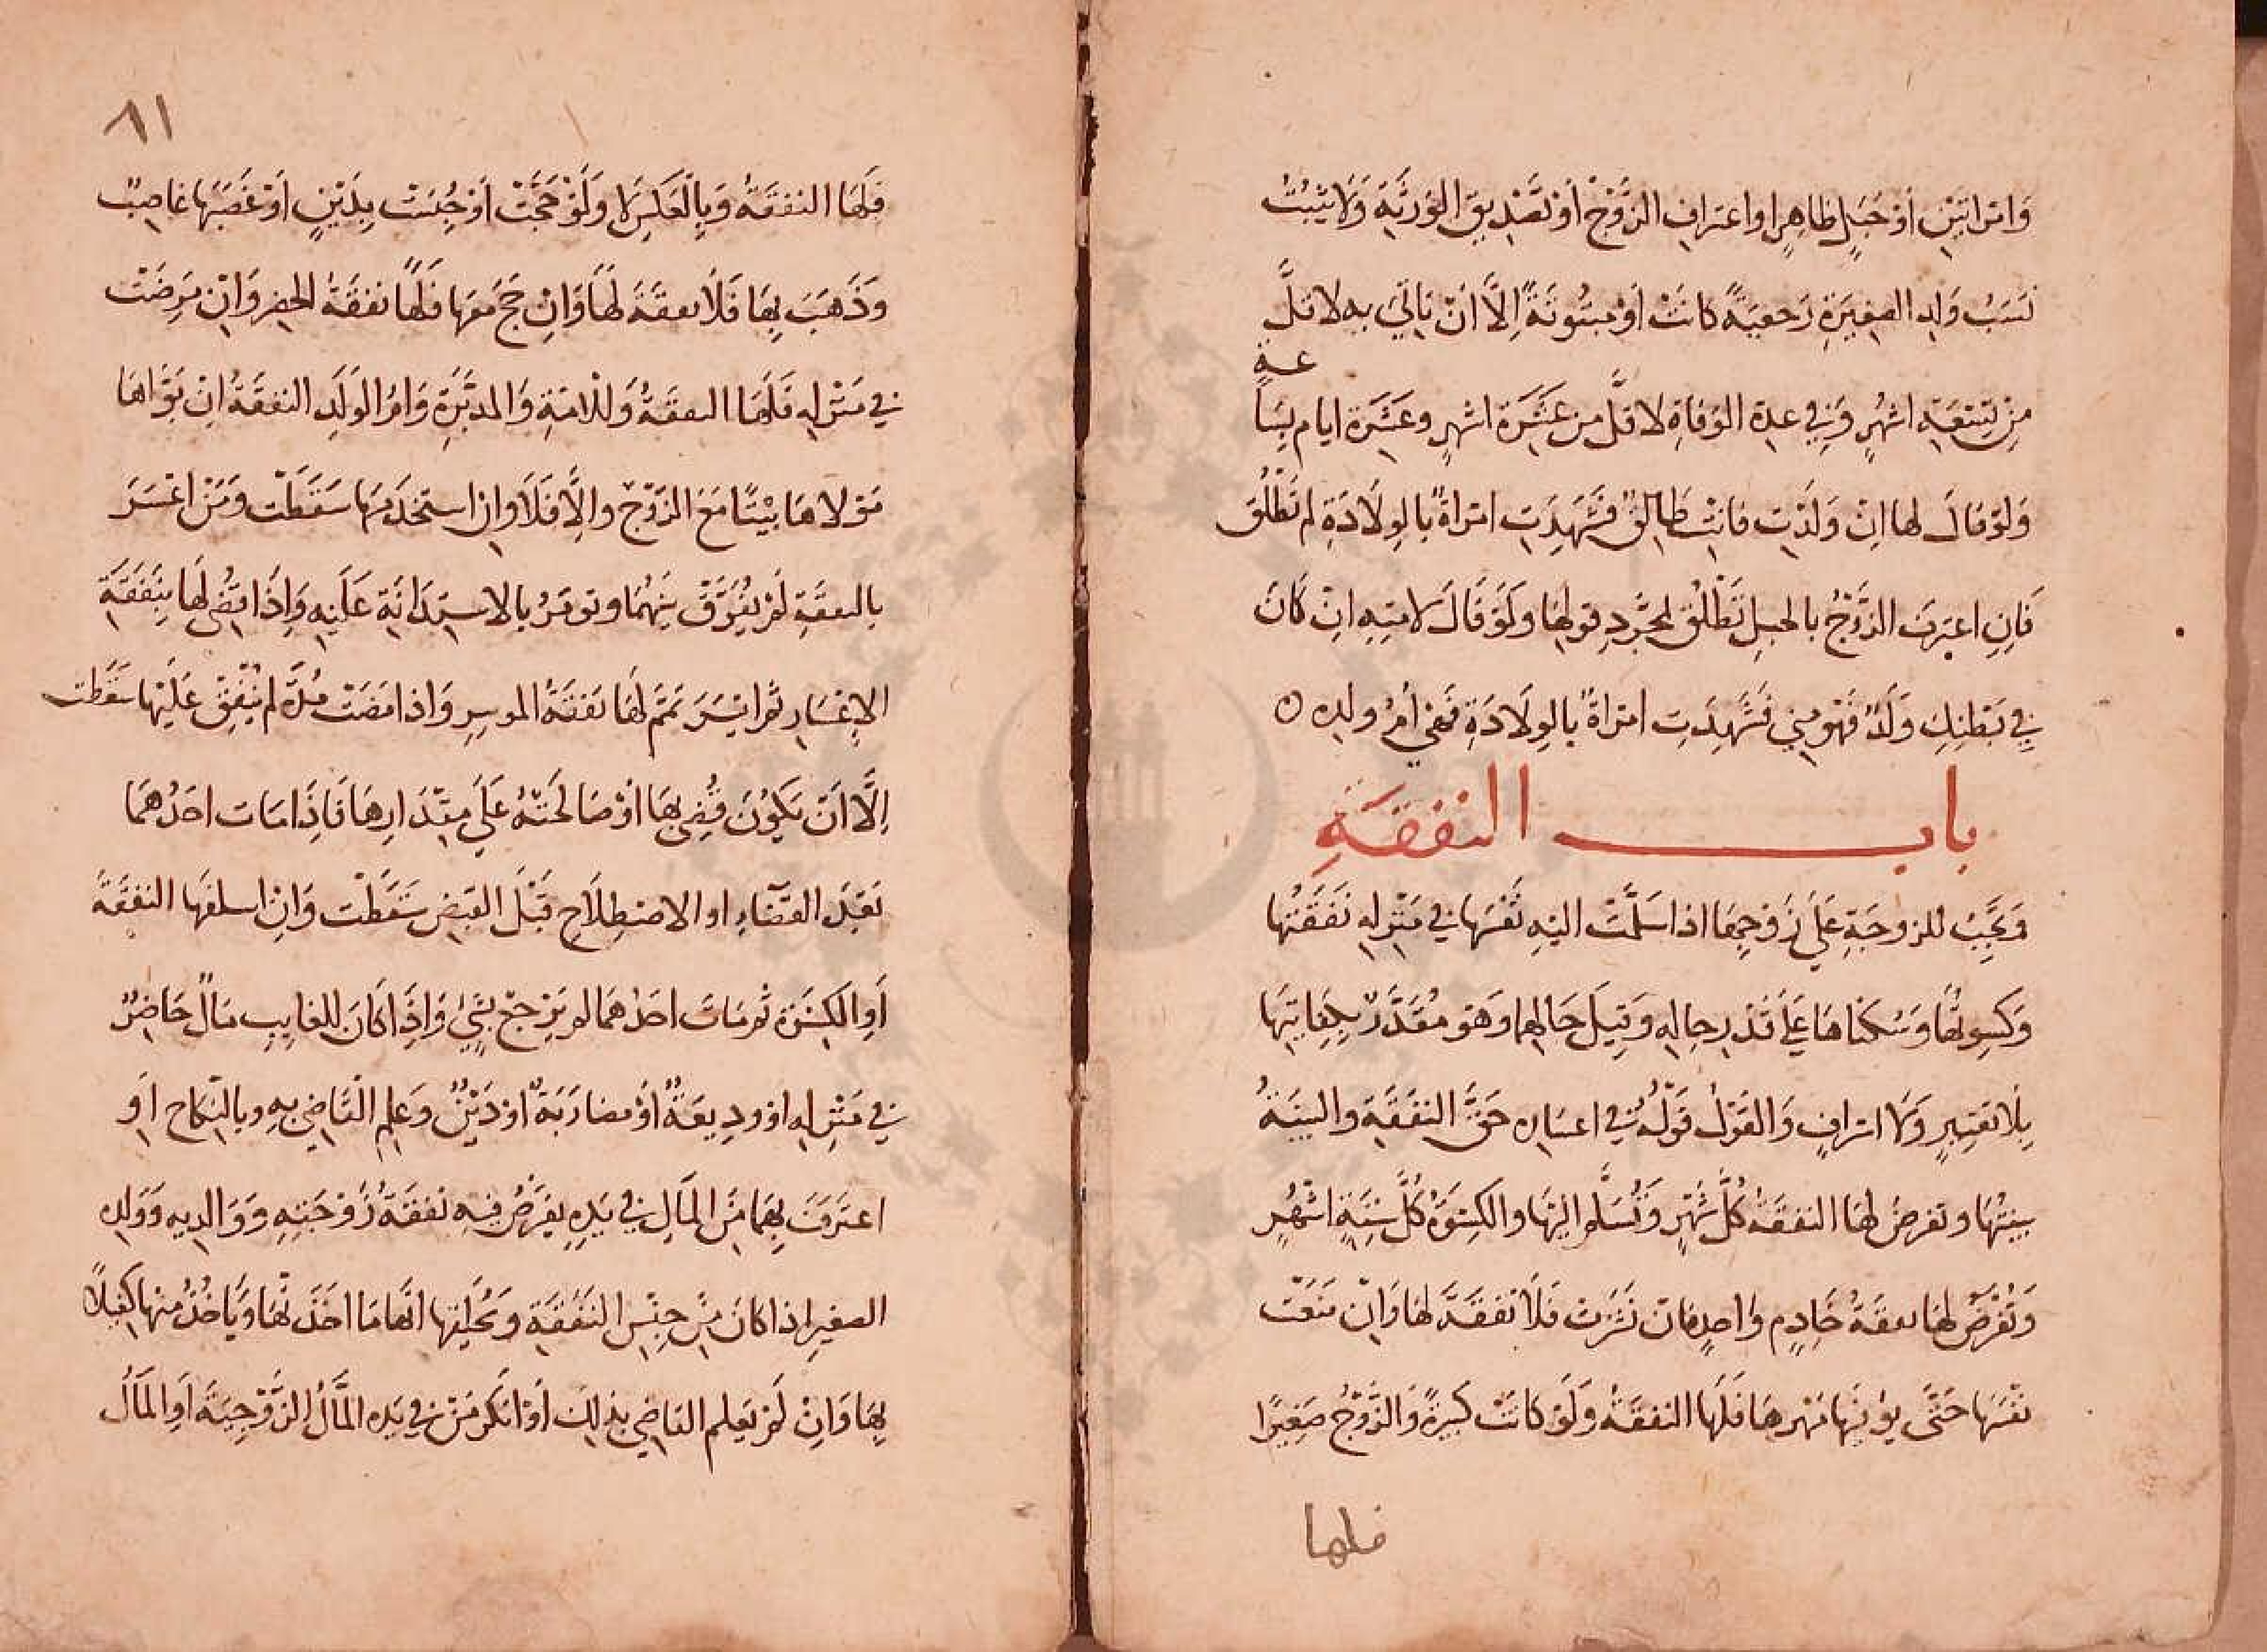 وَامْرَاتَيْنِ أَوْ حَبَلٍ ظَاهِرٍ او اعتراف الزَّوْجِ أوْ تَصْدِيقِ الوَرَثَةِ وَلَا يَثبُتُ
نَسَبُ وَلدِ الصغِيرَةِ رَجعيَةً كانَتْ أوْ مبتُوتَةً إلاَّ انْ يَاتيَ به لاقلَّ
مِنْ تِسْعَةِ اشهُرٍ وَفي عدة الوَفاةِ لاقلَّ من عَشَرَة اشهرٍ وعَشَرَة ايام بِسَا
عة
وَلوْ قالَ لها انْ وَلَدْتِ فانتِ طَالِقٌ فَشَهِدَتِ امْرَاةٌ بالوِلَادَةِ لم تَطْلُقْ
فَإنِ اعترفَ الزَّوْجُ بالحبلِ تَطْلُقْ لمجَرَّدِ قولها ولَوْ قَالَ لامَتِهِ انْ كَانَ
في بَطنِكِ وَلَدٌ فَهُوَ مِنِّي فَشَهِدَتِ امْرَاةٌ بالوِلَادَةِ فَهِيَ أمُّ ولدِه ه
باب النفقةِ
وَتَجِبُ للزوجَةِ عَلَى زَوْجِهَا اذا سَلَّمَتْ اليْهِ نَفْسَهَا في مَنْزلهِ نَفَقَتُهَا
وَكسِوتُهَا وَسُكْنَاهَا عَلَى قَدْرِ حالهِ وَقِيلَ حَالِهِمَا وَهْوَ مقَدَّرٌ بكِفَايَتِهَا
بِلَا تَقتِيرٍ وَلَا اسْرَافٍ وَالقَوْلُ قَوْلُهُ في اعسَارِه حَقَّ النفَقَةِ والبينَةُ
بينتُهَا وتفرضُ لهَا النفقَةُ كُلَّ شَهْرٍ وَتُسَلَّمُ اليْهَا والكِسْوَةُ كُلَّ سِتَّةِ اشْهُرٍ
وَتُفْرَضُ لهَا نفقَةُ خَادِمٍ وَاحدٍ فان نَشَزَتْ فَلَا نَفقَةَ لهَا وَانْ مَنَعَتْ
نَفْسَهَا حَتَّى يوُفيهَا مَهْرهَا فَلَهَا النفقَةُ وَلَوْ كانَتْ كبيرةً وَالزَّوْجُ صَغِيرًا
فلها
٨١
فَلَهَا النفقَةُ وَبِالعَكسِ لَا وَلَوْ حَجَّتْ اَوْ حُبِسَتْ بِدَيْنٍ اَوْ غَصَبَهَا غَاصِبٌ
وَذَهَبَ بِهَا فَلَا نفقَةَ لَهَا وَانِ حَجَّ معَهَا فَلَهَا نفقَةُ الحضرِ وَانْ مَرِضَتْ
في مَنْزلهِ فَلَهَا النفقَةُ وَللْامَةِ وَالمدَبَّرَةِ وَامِّ الوَلَدِ النفقَةُ انْ بَوَّاهَا
مَوْلاهَا بَيْتًا مَعَ الزَّوْجِ وَالاَّ فَلَا وانِ استخدَمَهَا سَقَطَتْ وَمَنْ اعْسَرَ
بالنفقَةِ لَمْ يُفَرَّقْ بَيْنَهُمَا وتومَرُ بالاسْتِدَانَةِ عَلَيْهِ وَاِذَا قضِيَ لَهَا بِنَفَقَةِ
الاِعْسَارِ ثُمَّ ايْسَرَ تَمَّمَ لَهَا نَفقَةُ الموسِرِ وَاذا مَضَتْ مُدَّة لم يُنْفِقْ عَلَيْهَا سَقَطَت
اِلاَّ انْ يَكوُنَ قُضِيَ بهَا اَوْ صَالحَتْهُ عَلَى مِقْدَارِهَا فَاِذَا مَاتَ احَدُهمَا
بَعْدَ القَضَاءِ او الاصْطِلَاحِ قَبْلَ القَبْضِ سَقَطَتْ وَاِنْ اسلفَهَا النفقَةَ
اَوِ الكِسْوَةَ ثُم مَاتَ احدُهمَا لم يَرْجِعْ بشَيْءٍ وَاِذَا كَانَ للغايبِ مَالٌ حَاضِرٌ
في مَنْزِلهِ او ودِيعَةٌ أوْ مضَارَبَةٌ اوْ دَيْنٌ وَعَلِمَ القَاضِي بهِ وبالنِّكَاح اَوِ
اعتَرَفَ بِهِمَا مَنِ المَالِ في يَدِهِ يفرَضُ فيهِ نفقَةُ زَوْجَتِهِ وَوَالدِيهِ وَوَلدِه
الصغِيرِ اذا كانَ مِنْ جنْسِ النَفَقَةِ وَيحُلِّفهَا انّهَا مَا اخَذَتْهَا وَيَاخُذُ منهَا كفيلاً
بِهَا وَاِنْ لَمْ يَعلم القاضِي بذلِكَ أوْ انكَرَ مَنْ في يَدِه المَالُ الزَّوْجِيَةَ اَوِ المَالَ